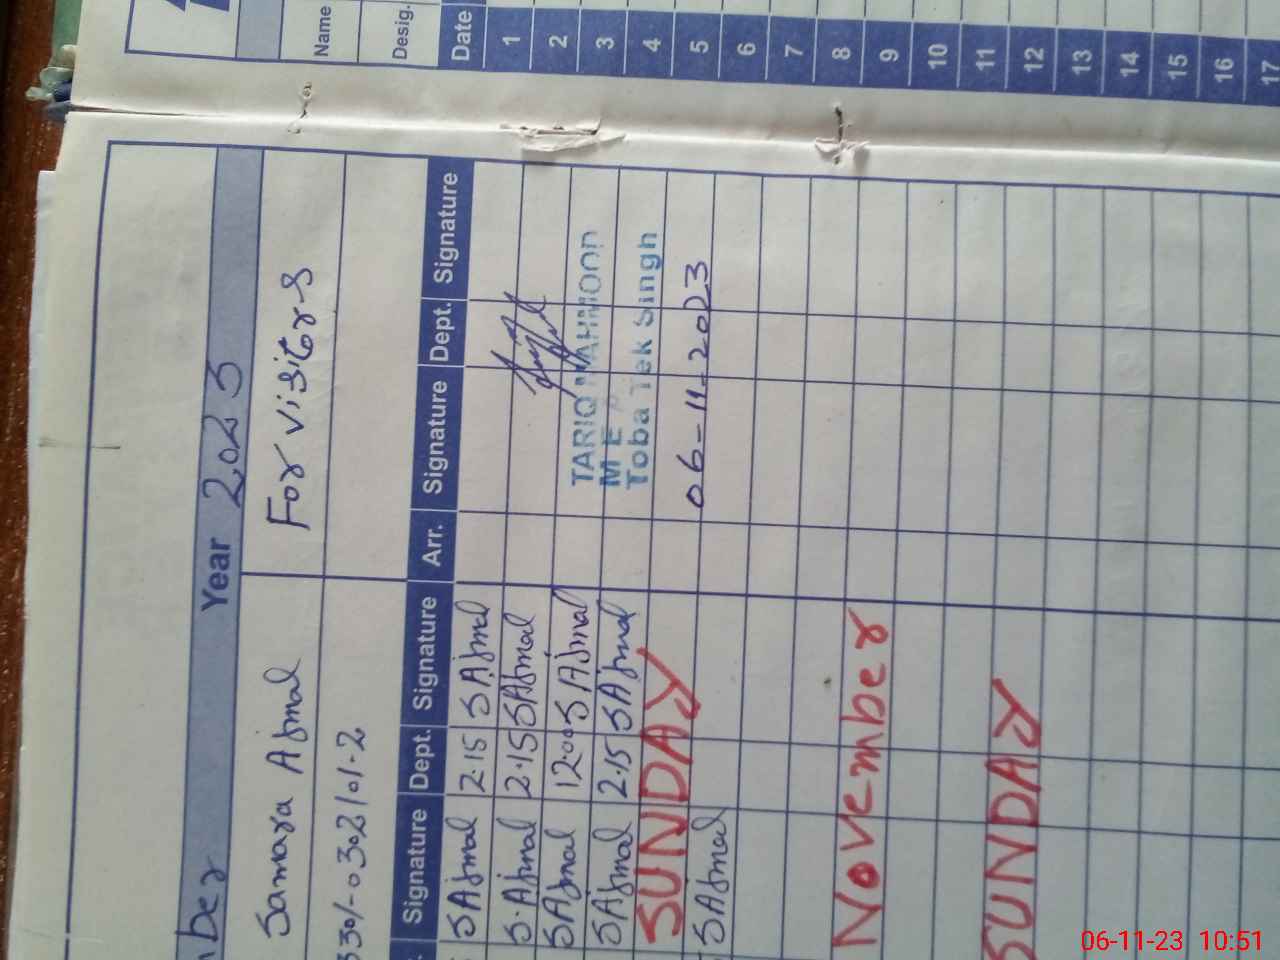 Name
Desig.
Date
1
2
3
4
5
6
7
8
9
10
11
12
13
14
15
16
17
ber Year 2023
Samara Ajmal For visitors
Signature Dept. Signature Arr. Signature Dept. Signature
SAjmal 2.15 SAjmal
S.Ajmal 2.15 SAjmal
SAjmal 12.00 SAjmal
SAjmal 2.15 SAjmal
SUNDAY
SAjmal
TARIQ MAHMOOD
M E
Toba Tek Singh
06-11-2023
November
SUNDAY
06-11-23 10:51